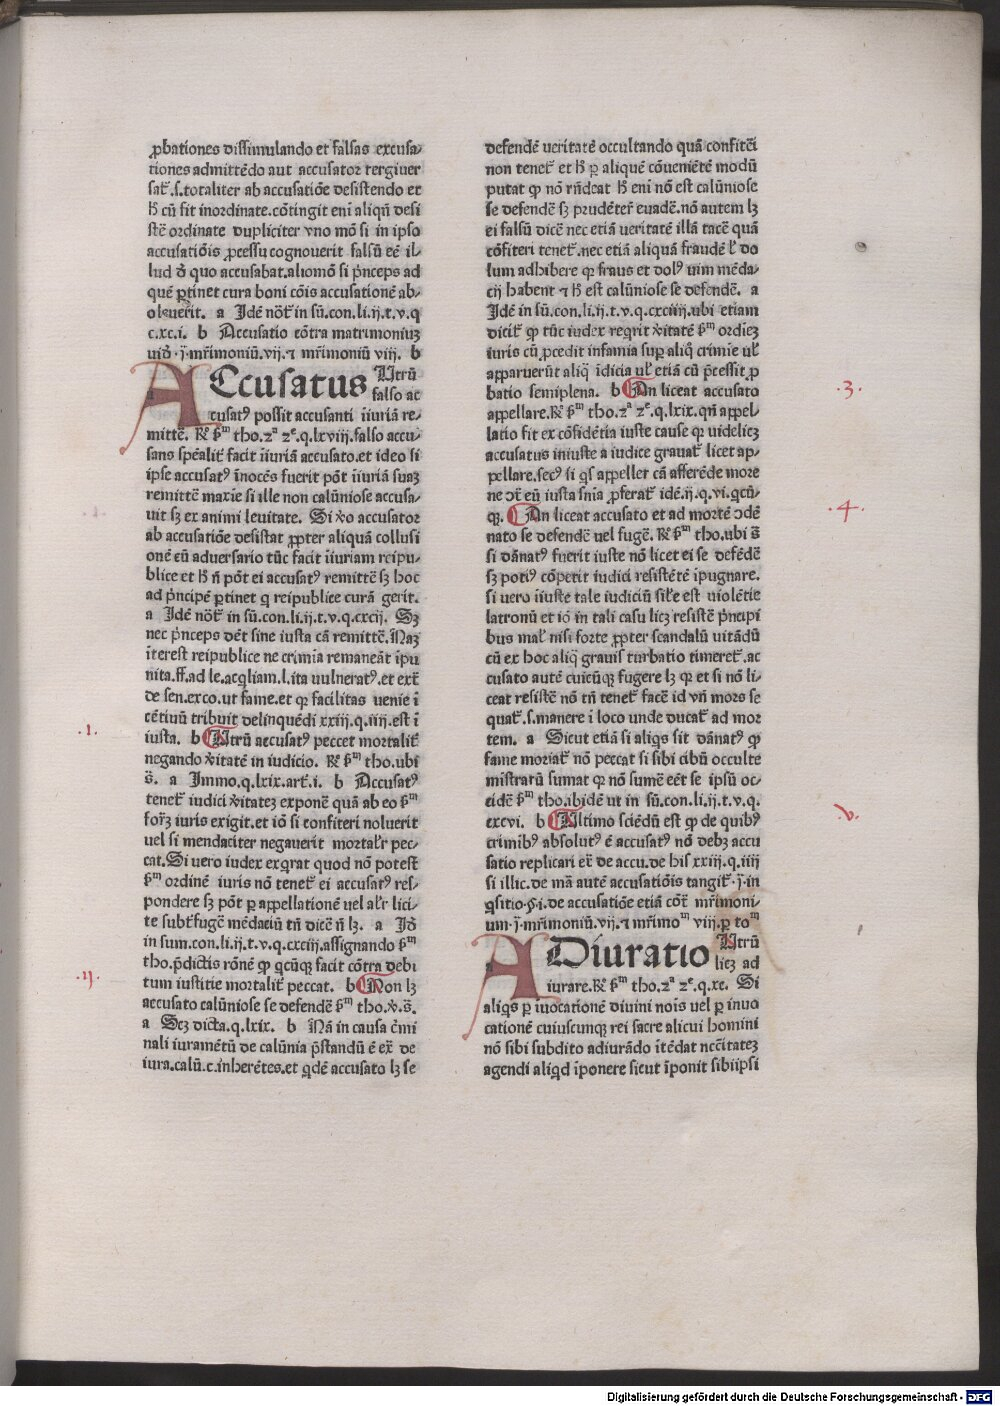 ꝓbationes dissimulando et falsas excusa-
tiones admittēdo aut accusator tergiuer
sat᷑.s.totaliter ab accusatiōe desistendo et
ħ cū fit inordinate.cōtingit eni aliqn̄ desi
stē ordinate dupliciter vno mō si in ipso
accusatiōis ꝓcessu cognouerit falsū eē il-
lud đ quo accusabat.aliomō si p̄nceps ad
quē ꝑtinet cura boni cōis accusationē ab-
oleuerit. a Idē nōt᷑ in sū.con.li.ij.t.v.q
c.xc.i. b Accusatio cōtra matrimoniuꝫ
uidꝰ.j.mr̄imoniū.vij.⁊ mr̄imoniū viij. b
ACcusatus Utrū
falso ac
cusatꝰ possit accusanti iīuriā re-
mittē. Rͤ ẜᵐ tho.2ᵃ 2ᵉ.q.lxviij.falso accu-
sans spēalit᷑ facit iīuriā accusato.et ideo si
ipse accusatꝰ īnocēs fuerit pōt iīuriā suaꝫ
remittē maxīe si ille non calūniose accusa-
uit sꝫ ex animi leuitate. Si ꝟo accusator
ab accusatiōe desistat ꝓpter aliquā collusi
onē cū aduersario tūc facit iīuriam reipu-
blice et ħ n̄ pōt ei accusatꝰ remittē sꝫ hoc
ad p̄ncipē ꝑtinet q reipublice curā gerit.
a Idē nōt᷑ in sū.con.li.ij.t.v.q.cxcij. Sꝫ
nec p̄nceps dēt sine iusta cā remittē.Naꝫ
īterest reipublice ne crimīa remaneāt īpu
nita.ff.ad le.acqliam.l.ita uulneratꝰ.et ext᷑
de sen.exco.ut fame.et ꝙ facilitas uenie ī
cētiuū tribuit delinquēdi xxiij.q.iiij.est ī
iusta. b Utrū accusatꝰ peccet mortalit᷑
negando ꝟitatē in iudicio. Rͤ ẜᵐ tho.ubi
s̄. a Immo.q.lxix.art᷑.i. b Accusatꝰ
tenet᷑ iudici ꝟitateꝫ exponē quā ab eo ẜᵐ
for̄ꝫ iuris exigit.et iō si confiteri noluerit
uel si mendaciter negauerit mortal᷑r pec-
cat.Si uero iudex exqrat quod nō potest
ẜᵐ ordinē iuris nō tenet᷑ ei accusatꝰ res-
pondere sꝫ pōt ꝑ appellationē uel al᷑r lici-
te subt᷑fugē mēdaciū tn̄ dicē n̄ lꝫ. a Idꝰ
in sum.con.li.ij.t.v.q.cxciij.assignando ẜᵐ
tho.p̄dictis rōnē ꝙ qcūqꝫ facit cōtra debi
tum iustitie mortalit᷑ peccat. b Non lꝫ
accusato calūniose se defendē ẜᵐ tho.ꝟ.s̄.
a Seꝫ dicta.q.lxix. b Nā in causa c̄mi
nali iuramētū de calūnia p̄standū ē ex᷑ de
iura.calū.c.inherētes.et qdē accusato lꝫ se
defendē ueritatē occultando quā confitēi
non tenet᷑ et ħ ꝑ aliquē cōueniētē modū
putat ꝙ nō rn̄deat ħ eni nō est calūniose
se defendē sꝫ prudēter᷑ euadē.nō autem lꝫ
ei falsū dicē nec etiā ueritatē illā tacē quā
cōfiteri tenet᷑.nec etiā aliquā fraudē l᷑ do
lum adhibere qr fraus et dolꝰ uim mēda-
cij habent ⁊ ħ est calūniose se defendē. a
Idē in sū.con.li.ij.t.v.q.cxciiij.ubi etiam
dicit᷑ ꝙ tūc iudex reqrit ꝟitatē ẜᵐ ordīeꝫ
iuris cū ꝓcedit infamia suꝑ aliq̄ crimīe ul᷑
apparuerūt aliq̄ īdicia ul᷑ etiā cū p̄cessit ꝓ
batio semiplena. b An liceat accusato
appellare.Rͤ ẜᵐ tho.2ᵃ 2ᵉ.q.lxix.qn̄ appel-
latio fit ex cōfidētia iuste cause qr uidelicꝫ
accusatus iniuste a iudice grauat᷑ licet ap-
pellare.secꝰ si qs appellet cā afferēde more
ne ↄt᷑ eū iusta snīa ꝓferat᷑ idē.ij.q.vi.qcū-
qꝫ. An liceat accusato et ad mortē ↄdē
nato se defendē uel fugē. Rͤ ẜᵐ tho.ubi s̄
si dānatꝰ fuerit iuste nō licet ei se defēdē
sꝫ potiꝰ cōpetit iudici resistētē īpugnare.
si uero iīuste tale iudiciū sil᷑e est uiolētie
latronū et iō in tali casu licꝫ resistē p̄ncipi
bus mal᷑ nisi forte ꝓpter scandalū uitādū
cū ex hoc aliq̄ grauis turbatio timeret᷑.ac
cusato autē cuicūqꝫ fugere lꝫ qr et si nō li-
ceat resistē nō tn̄ tenet᷑ facē id vn̄ mors se
quat᷑.s.manere ī loco unde ducat᷑ ad mor
tem. a Sicut etiā si aliqs sit dānatꝰ ꝙ
fame moriat᷑ nō peccat si sibi cibū occulte
mistratū sumat qr nō sumē eēt se ipsū oc-
cidē ẜᵐ tho.ibidē ut in sū.con.li.ij.t.v.q.
cxcvi. b Ultimo sciēdū est ꝙ de quibꝰ
crimibꝰ absolutꝰ ē accusatꝰ nō debꝫ accu
satio replicari ex᷑ de accu.de his xxiij.q.iiij
si illic.de mā autē accusatiōis tangit᷑.j.in
qsitio.§.i.de accusatiōe etiā cōt᷑ mr̄imoni-
um.j.mr̄imoniū.vij.⁊ mr̄imoᵐ viij.ꝑ toᵐ
ADiuratio Utrū
liceꝫ ad
iurare.Rͤ ẜᵐ tho.2ᵃ 2ᵉ.q.xc. Si
aliqs ꝑ īuocationē diuini nōis uel ꝑ inuo
cationē cuiuscumqꝫ rei sacre alicui homini
nō sibi subdito adiurādo ītēdat nēcitateꝫ
agendi aliqd īponere sicut īponit sibiipsi
.1.
.ij.
.3.
.4.
.v.
Digitalisierung gefördert durch die Deutsche Forschungsgemeinschaft - DFG